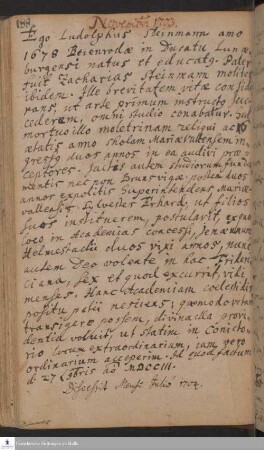 188.
Novembri 1703.
Ego Ludolphus Steinmann anno
1678 Beienrodæ in Ducatu Lunæ-
burgensi natus et educatus. Pater
fuit Zacharias Steinmann molitor
ibidem. Ille brevitatem vitæ conside-
rans, ut arte primum instructo suc-
cederem, omni studio conabatur. Sed
mortuo illo moletrinam reliqui ac
ætatis anno scholam Mariævallensem in-
gressus duos annos in ea audivi præ-
ceptores. Jactis autem studiorum funda-
mentis nec non Brunsvigæ postea duos
annos expolitis Superintendens Mariæ-
vallensis Sylvester Erhard, ut filios
suos instituerem, postulavit, ex quo
loco in Academias concessi, Jenam
Helmestadii duos vixi annos, nunc
autem Deo volente in hac Fride-
riciana, sex et quod excurrit, vidi
menses. Hanc Academiam
positus petii nescius, quomodo vitam
transigere possem, divina provi-
dentia voluit, ut statim in Convicto-
rio locum extraordinarium, jam vero
ordinarium acceperim. Id quod factum
d. 27 9bris ao MDCCIII.
Discessit Mense Julio 1704.